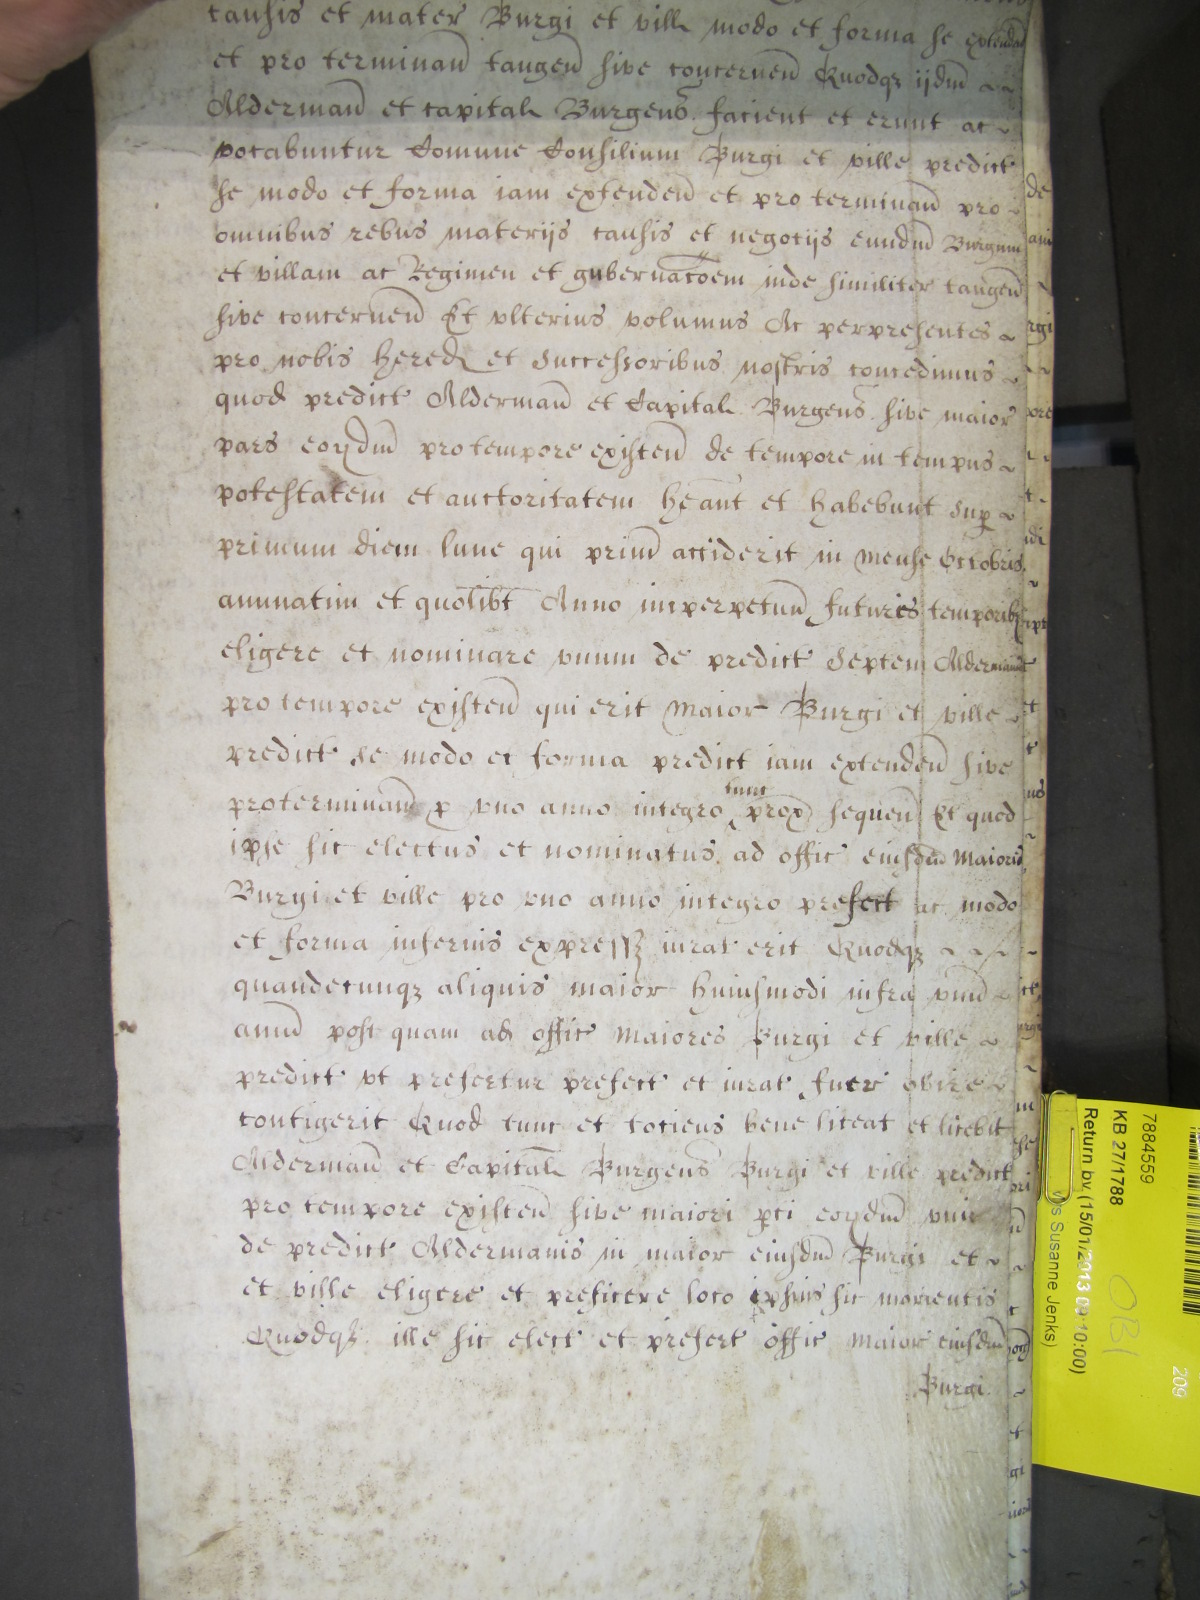 causis et mater Burgi et vill modo et forma se extendend
et pro terminand tangen sive concernen Quodqz ijdm
Aldermani et capital Burgens facient et erunt ac
vocabuntur Comune Consilium Burgi et ville predict
se modo et forma iam extenden et pro terminand pro
omnibus rebus materijs causis et negotijs eundm Burgum
et villam ac Regimen et gubernacoem inde similiter tangen
sive concernen Et ulterius volumus Ac per presentes
pro nobis hered et Successoribus nostris concedimus
quod predict Alderman et Capital Burgens sive maior
pars eorundm pro tempore existen de tempore in tempus
potestatem et auctoritatem heant et habebunt sup
primum diem lune qui prim acciderit in mense Octobris
annuatim et quolibt Anno imperpetuu futuris temporibz
eligere et nominare unum de predict Septem Alderman
pro tempore existen qui erit maior Burgi et ville
predict se modo et forma predict iam extenden sive
proterminand p uno anno integro tunc prox sequen Et quod
ipse sic electus et nominatus ad offic eiusdm Maioris
Burgi et ville pro uno anno integro prefect ac modo
et forma inferius express iurat erit Quodqz
quandocunqz aliquis maior huiusmodi infra unu
annu post quam ad offic Maiores Burgi et ville
predict ut prefertur prefect et iurat fuer obire
contigerit Quod tunc et totiens bene liceat et licebit
Alderman et Capital Burgens Burgi et ville predict
pro tempore existen sive maiori pti eorundm
de predict Aldermanis in maior eiusdm Burgi et
et ville eligere et preficere loco ipsius sic morientis
Quodqz ille sic elect et prefect offic maior eiusdm
Burgi
7884559
KB 27/1788
Return by (15/01/2013 09:10:00)
Susanne Jenks)
OBI
209